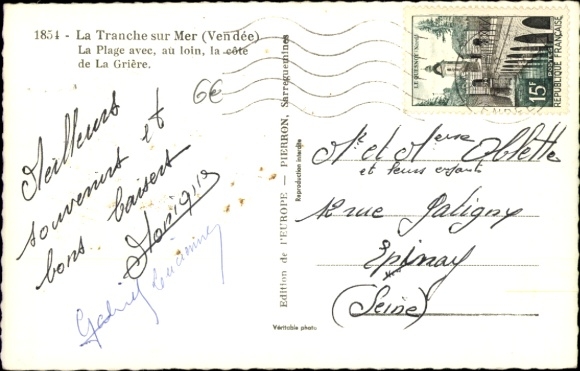 1854 - La Tranche sur Mer (Vendée)
La Plage avec, au loin, la côte
de La Grière.
6€
Meilleurs
souvenirs et
bons baisers
Monique
Gabriel
Edition de l'EUROPE — PIERRON, Sarreguemines
Reproduction interdite
Véritable photo
LE QUESNOY (Nord)
15F
POSTES
REPUBLIQUE FRANÇAISE
Mr et Mme
et leurs enfants
12 rue
Epinay
(Seine)